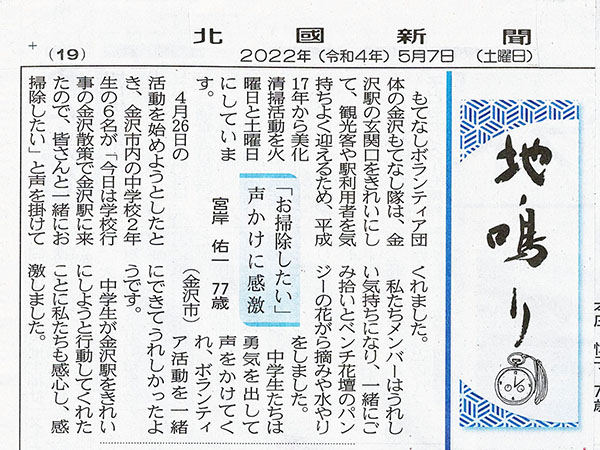 北國新聞
(19)
2022年(令和4年)5月7日 (土曜日)
地鳴り
「お掃除したい」
声かけに感激
宮岸 佑一 77歳
(金沢市)
もてなしボランティア団
体の金沢もてなし隊は、金
沢駅の玄関口をきれいにし
て、観光客や駅利用者を気
持ちよく迎えるため、平成
17年から美化
清掃活動を火
曜日と土曜日
にしていま
す。
4月26日の
活動を始めようとしたと
き、金沢市内の中学校2年
生の6名が「今日は学校行
事の金沢散策で金沢駅に来
たので、皆さんと一緒にお
掃除したい」と声を掛けて
くれました。
私たちメンバーはうれし
い気持ちになり、一緒にご
み拾いとベンチ花壇のパン
ジーの花がら摘みや水やり
をしました。
中学生たちは
勇気を出して
声をかけてく
れ、ボランティ
ア活動を一緒
にできてうれしかったよ
うです。
中学生が金沢駅をきれい
にしようと行動してくれた
ことに私たちも感心し、感
激しました。